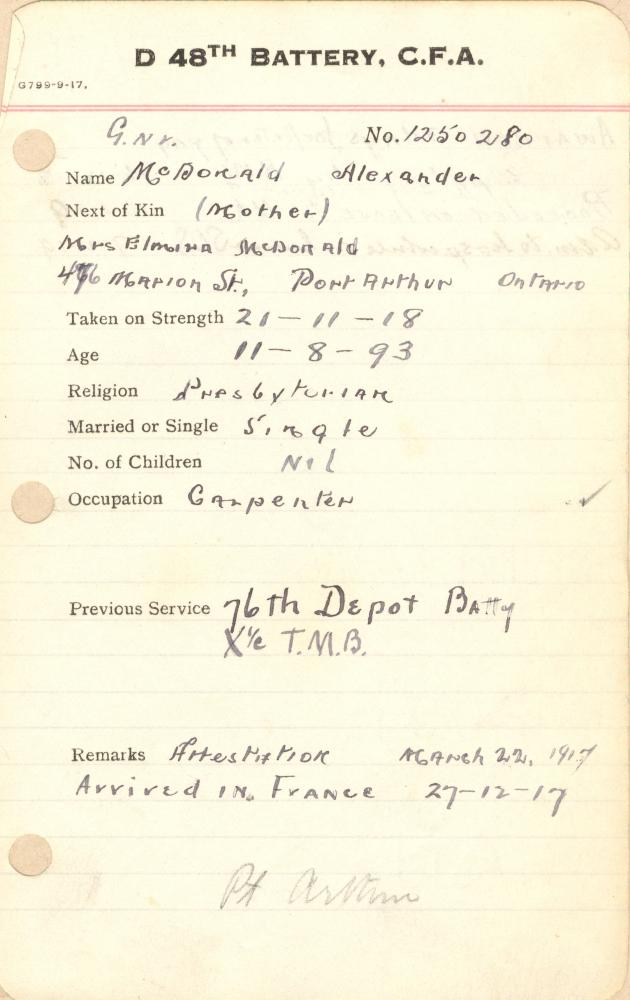 D 48TH BATTERY, C.F.A.
G799-9-17.
Gnr. No. 1250280
Name McDonald Alexander
Next of Kin (Mother)
Mrs Elmina McDonald
Marion St., Port Arthur Ontario
Taken on Strength 21-11-18
Age 11-8-93
Religion Presbyterian
Married or Single Single
No. of Children Nil
Occupation Carpenter ✓
Previous Service 76th Depot Batty
T.M.B.
Remarks Attestation March 22, 1917
Arrived in France 27-12-17
Pt Arthur